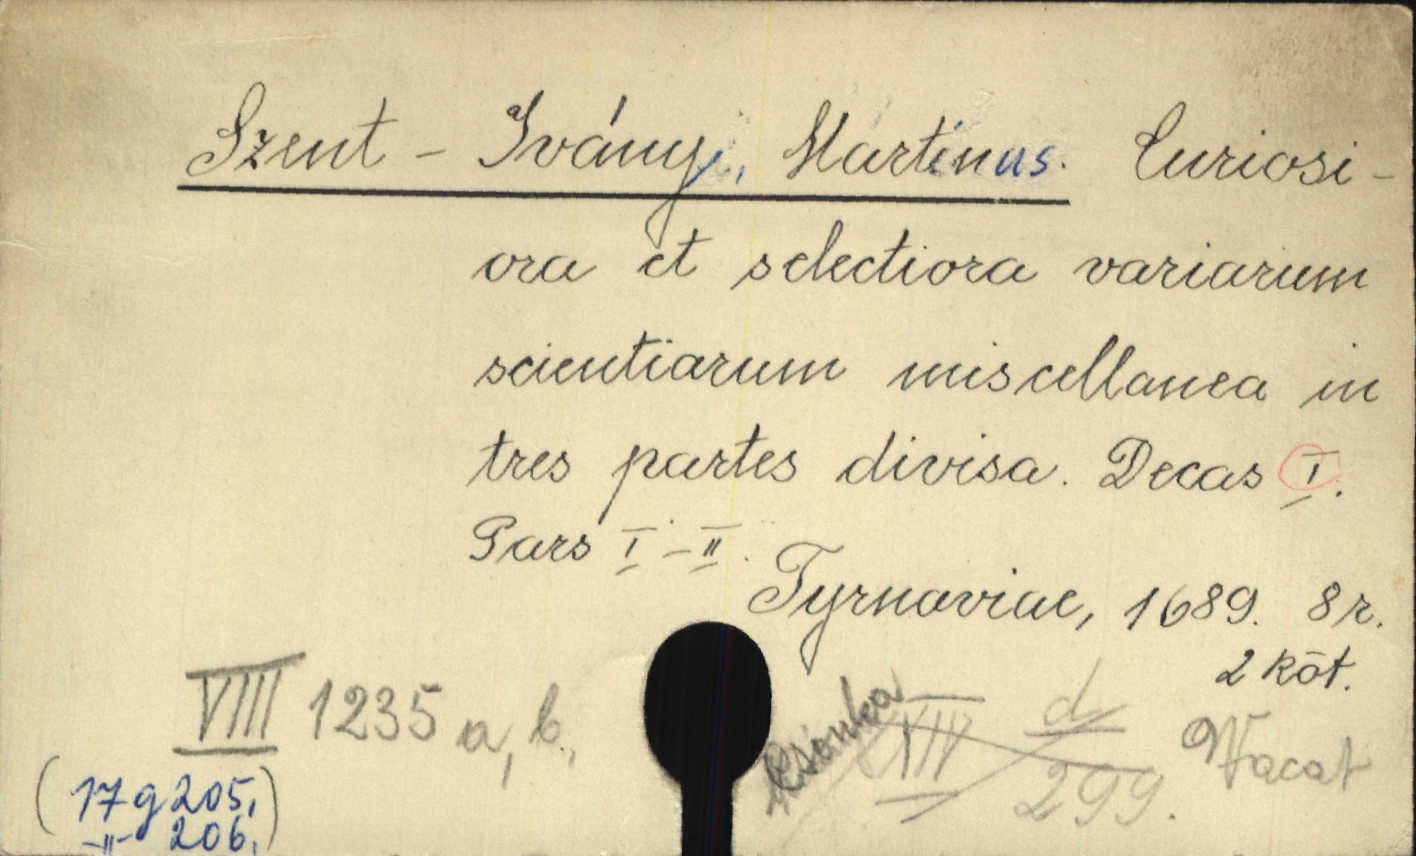 Szent-Ivány, Martinus. Curiosi-
ora et selectiora variarum
scientiarum miscellanea in
tres partes divisa. Decas I.
Pars I-II.
Tyrnaviae, 1689. 8r.
2 köt.
VIII 1235 a, b.,
Csonka XIV d/299. Vacat
(17 g 205,
-"- 206.)